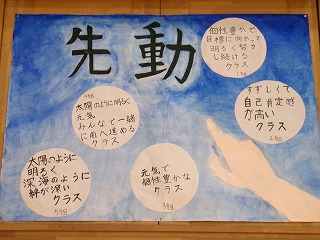 先動
個性豊かで
目標に向かって
明るく努力
し続ける
クラス
すずしくて
自己肯定感
が高い
クラス
2年組
太陽のように明るく
元気
みんなで一緒
に前へ進める
クラス
太陽のように
明るく
深海のように
絆が深い
クラス
5年組
元気で
個性豊かな
クラス
3年組